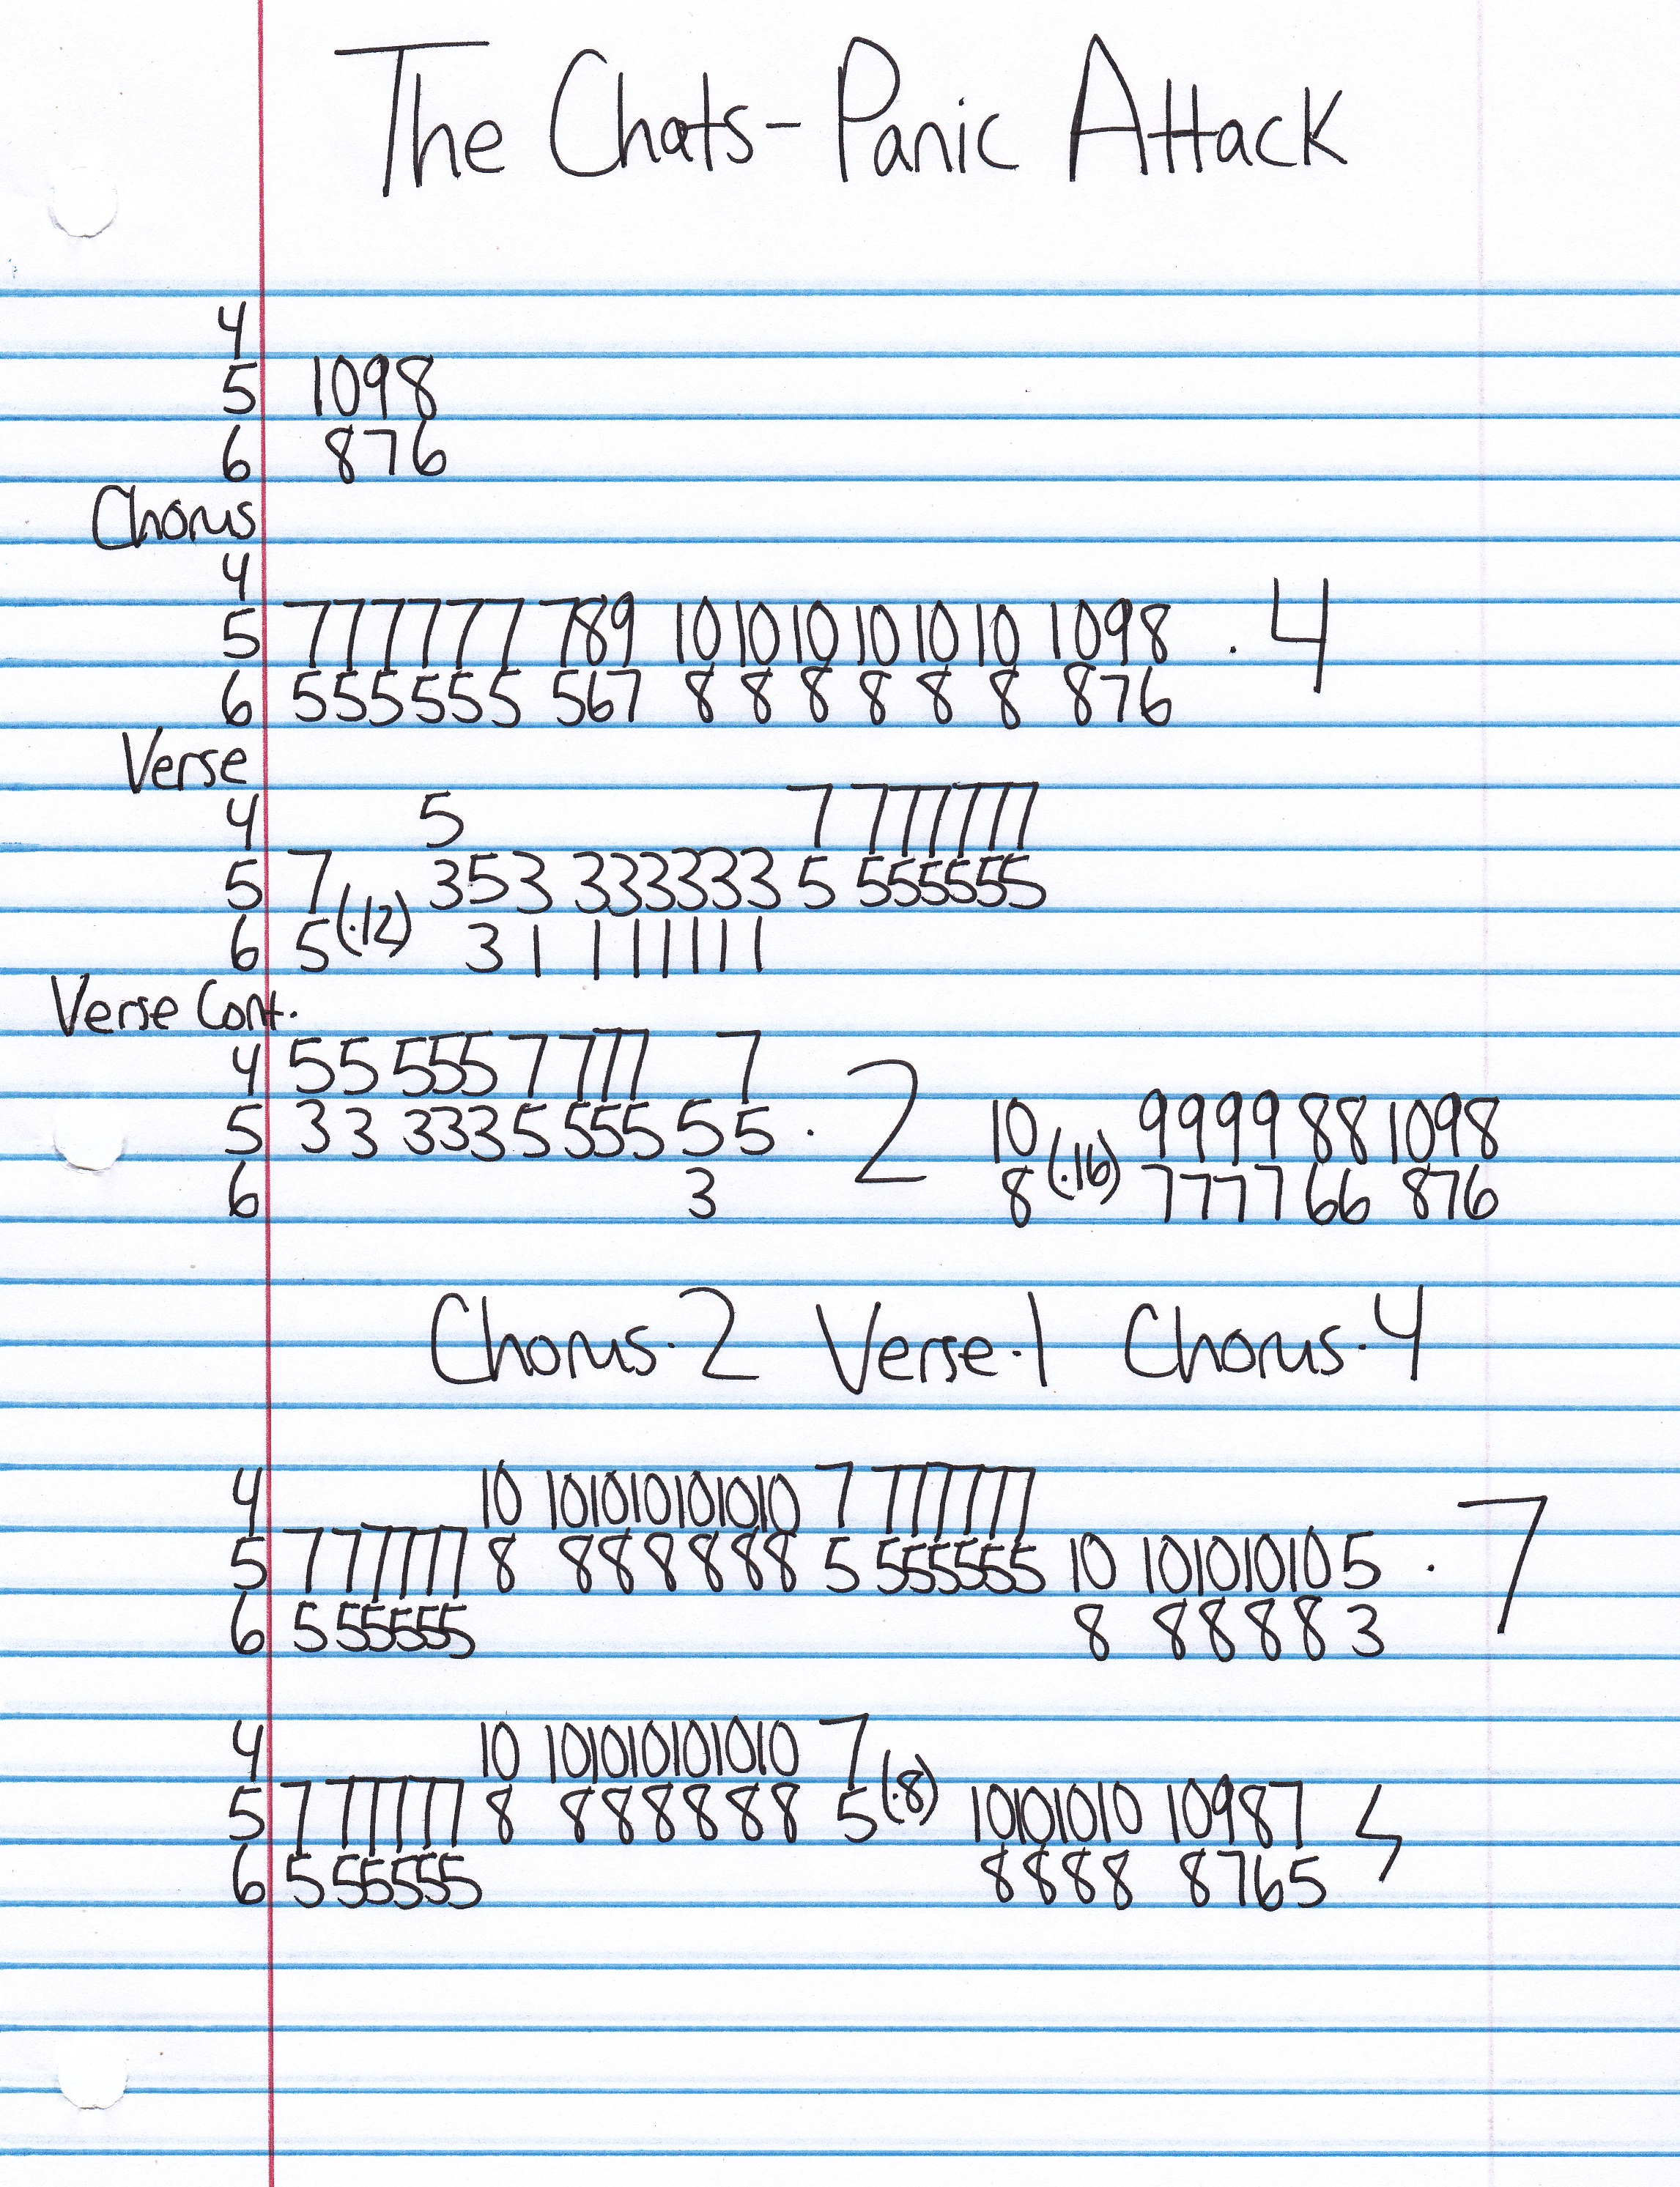 The Chats - Panic Attack
4
5 10 9 8
6 8 7 6
Chorus
4
5 7 7 7 7 7 7 7 8 9 10 10 10 10 10 10 10 9 8 · 4
6 5 5 5 5 5 5 5 6 7 8 8 8 8 8 8 8 7 6
Verse
4 5 7 7 7 7 7 7 7
5 7 (·12) 3 5 3 3 3 3 3 3 3 5 5 5 5 5 5 5
6 5 3 1 1 1 1 1 1 1
Verse Cont.
4 5 5 5 5 5 7 7 7 7 7
5 3 3 3 3 3 5 5 5 5 5 5 · 2 10 (·16) 9 9 9 9 8 8 10 9 8
6 3 8 7 7 7 7 6 6 8 7 6
Chorus·2 Verse·1 Chorus·4
4 10 10 10 10 10 10 10 7 7 7 7 7 7 7
5 7 7 7 7 7 7 8 8 8 8 8 8 8 5 5 5 5 5 5 5 10 10 10 10 10 5 · 7
6 5 5 5 5 5 5 8 8 8 8 8 3
4 10 10 10 10 10 10 10 7
5 7 7 7 7 7 7 8 8 8 8 8 8 8 5 (·8) 10 10 10 10 10 9 8 7
6 5 5 5 5 5 5 8 8 8 8 8 7 6 5